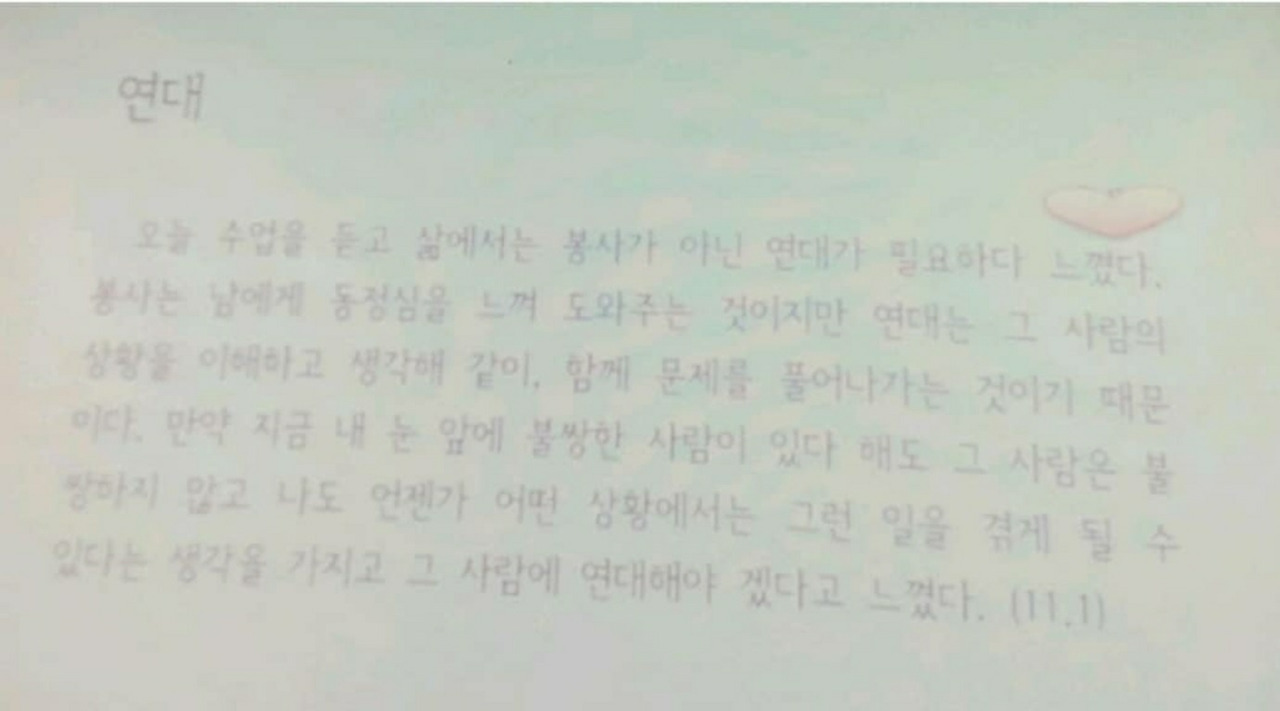 연대
오늘 수업을 듣고 삶에서는 봉사가 아닌 연대가 필요하다 느꼈다.
봉사는 남에게 동정심을 느껴 도와주는 것이지만 연대는 그 사람의
상황을 이해하고 생각해 같이, 함께 문제를 풀어나가는 것이기 때문
이다. 만약 지금 내 눈 앞에 불쌍한 사람이 있다 해도 그 사람은 불
쌍하지 않고 나도 언젠가 어떤 상황에서는 그런 일을 겪게 될 수
있다는 생각을 가지고 그 사람에 연대해야 겠다고 느꼈다. (11.1)